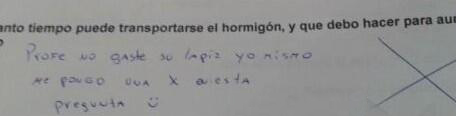 anto tiempo puede transportarse el hormigón, y que debo hacer para au
Profe no gaste su lapiz yo mismo
me pongo una X en esta
pregunta